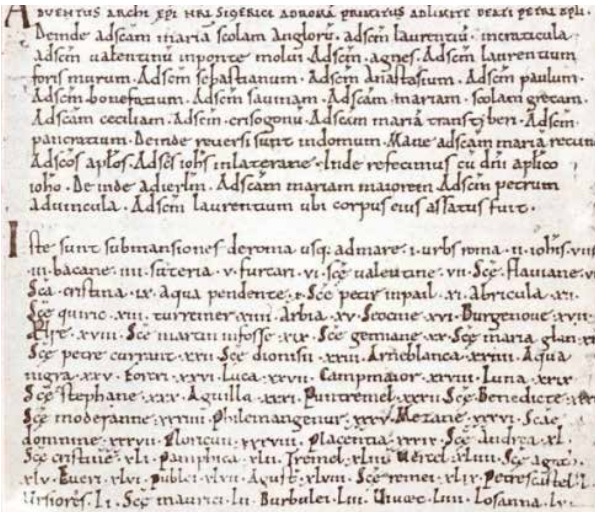 ADVENTUS ARCHI EPI NRI SIGERICI ADROMA PRIMITUS ADLIMITE BEATI PETRI APLI.
Deinde adscam maria scolam angloru. adscm laurentiu. incraticula
adscm ualentinu inponte molui. Adscm. agnes. Adscm laurentium
foris murum. Adscm sebastianum. Adscm Anastasium. Adscm paulum.
Adscm bonefatium. Adscam sauinam. Adscam. mariam. scolam grecam.
Adscam ceciliam. Adscm. crisogonu. Adscam mariã transtyberi. Adscm.
pancratium. Deinde reuersi sunt indomum. Mane adscam mariã
Adscos aplos. Adscs iohs inlaterane. Inde refecimus cu dni aplico
ioho. De inde adierlm. Adscam mariam maiorem Adscm petrum
aduincula. Adscm laurentium ubi corpus eius assatus fuit.
Iste sunt submansiones deroma usq; admare. i. urbs roma. ii. iohis. viiii
iii. bacane. iiii. suteria. v. furcari. vi. sce ualentine. vii. Sce. flauiane.
Sca cristina. ix. Aqua pendente. x. Sce petir inpail. xi. Abricula. xii.
Sce quiric. xiii. turreiner. xiiii. Arbia. xv. Seocine. xvi. Burgenoue. xvii.
Ælse. xviii. Sce martin infosse. xix. Sce gemiane. xx. Sce maria glan. xxi
Sce petre currant. xxii. Sce dionisii. xxiii. Arneblanca. xxiiii. Aqua
nigra. xxv. forcri. xxvi. Luca. xxvii. Campmaior. xxviii. Luna. xxix.
Sce stephane. xxx. Aguilla. xxxi. Puntremel. xxxii. Sce Benedicte.
Sce moderanne. xxxiiii. Philemangenur. xxxv. Mezane. xxxvi. Scae
domnine. xxxvii. Floricum. xxxviii. Placentia. xxxix. Sce Andrea. xl.
Sce cristine. xli. Pamphica. xlii. Tremel. xliii. Uercel. xliiii. Sce agath.
xlv. Everi. xlvi. publei. xlvii. Agust. xlviii. Sce remei. xlix. Petrescastel. l.
Ursiores. li. Sce maurici. lii. Burbulei. liii. Uiuaec. liiii. Losanna. lv.